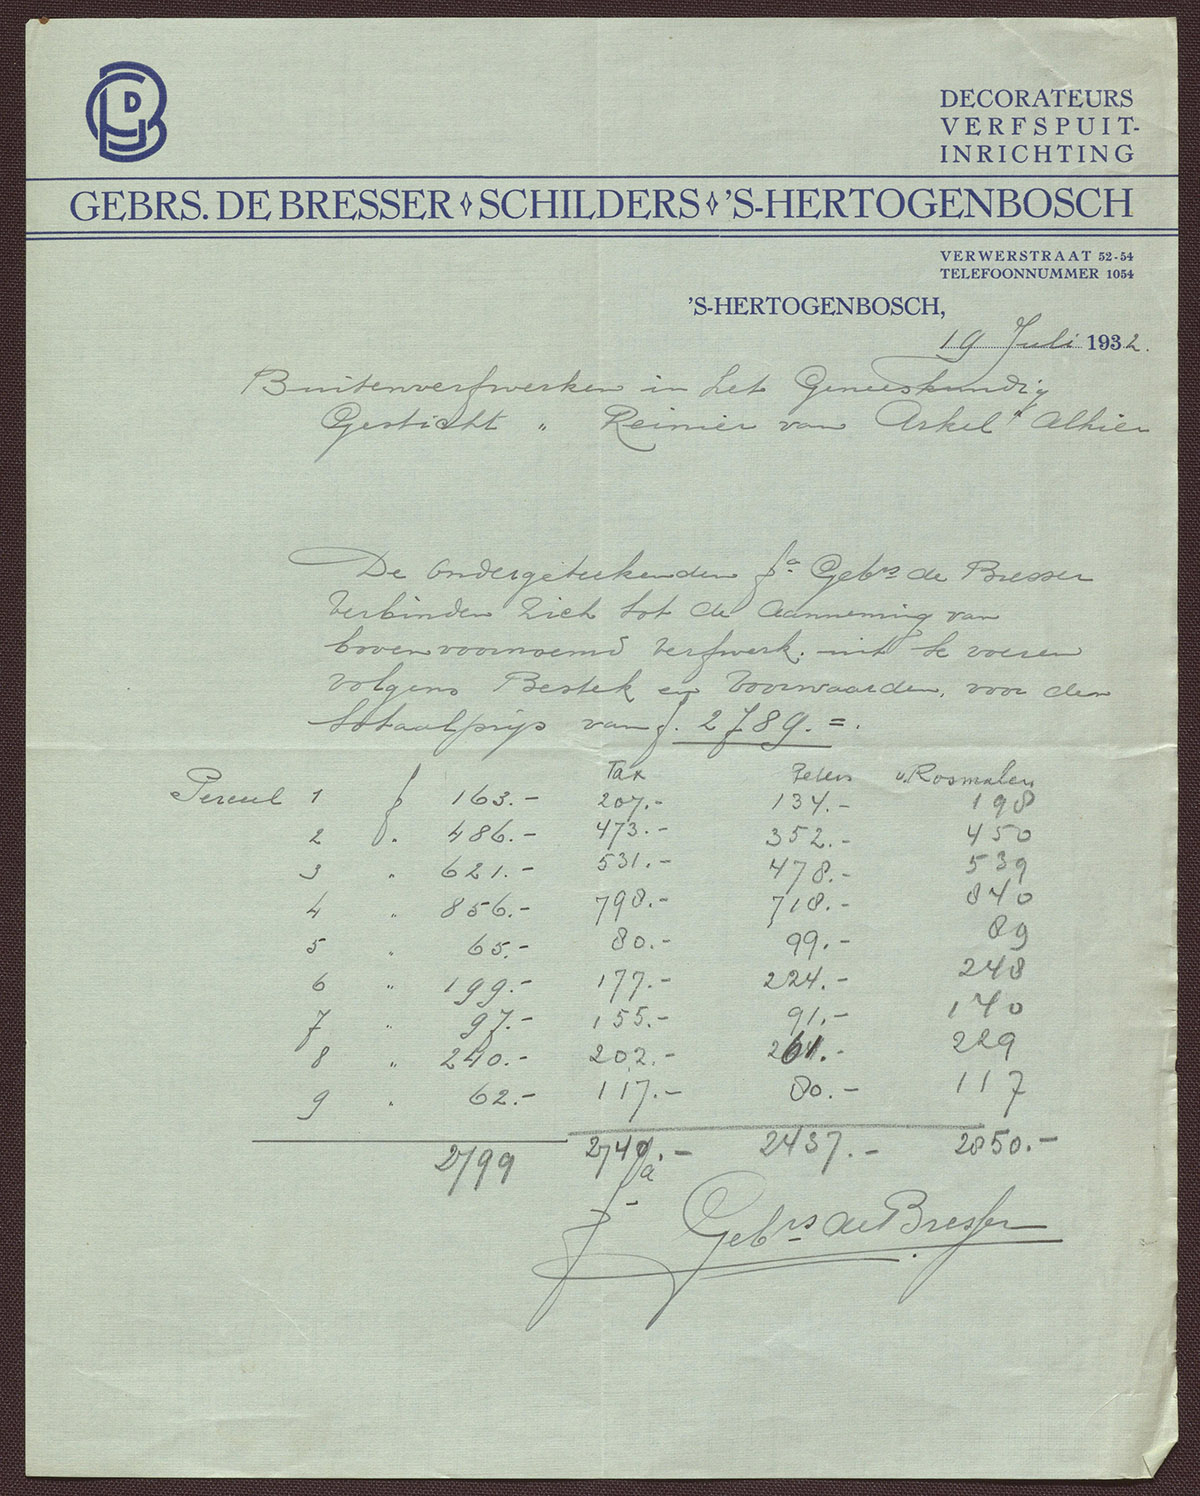 GDB
DECORATEURS
VERFSPUIT-
INRICHTING
GEBRS. DE BRESSER ◊ SCHILDERS ◊ 'S-HERTOGENBOSCH
VERWERSTRAAT 52-54
TELEFOONNUMMER 1054
'S-HERTOGENBOSCH,
19 Juli 1932.
Buitenverfwerken in het Geneeskundig
Gesticht „ Reinier van Arkel" Alhier
De Ondergeteekenden fa Gebrs de Bresser
Verbinden zich tot de Aanneming van
bovenvoornoemd verfwerk. uit te voeren
volgens Bestek en Voorwaarden, voor den
totaalprijs van f. 2789.=.
Tax Peters v. Rosmalen
Perceel 1 f 163.- 207.- 134.- 198
2 „ 486.- 473.- 352.- 450
3 „ 621.- 531.- 478.- 539
4 „ 856.- 798.- 718.- 840
5 „ 65.- 80.- 99.- 89
6 „ 199.- 177.- 224.- 248
7 „ 97.- 155.- 91.- 140
8 „ 240.- 202.- 261.- 229
9 „ 62.- 117.- 80.- 117
2799 2740.- 2437.- 2850.-
fa Gebrs de Bresser